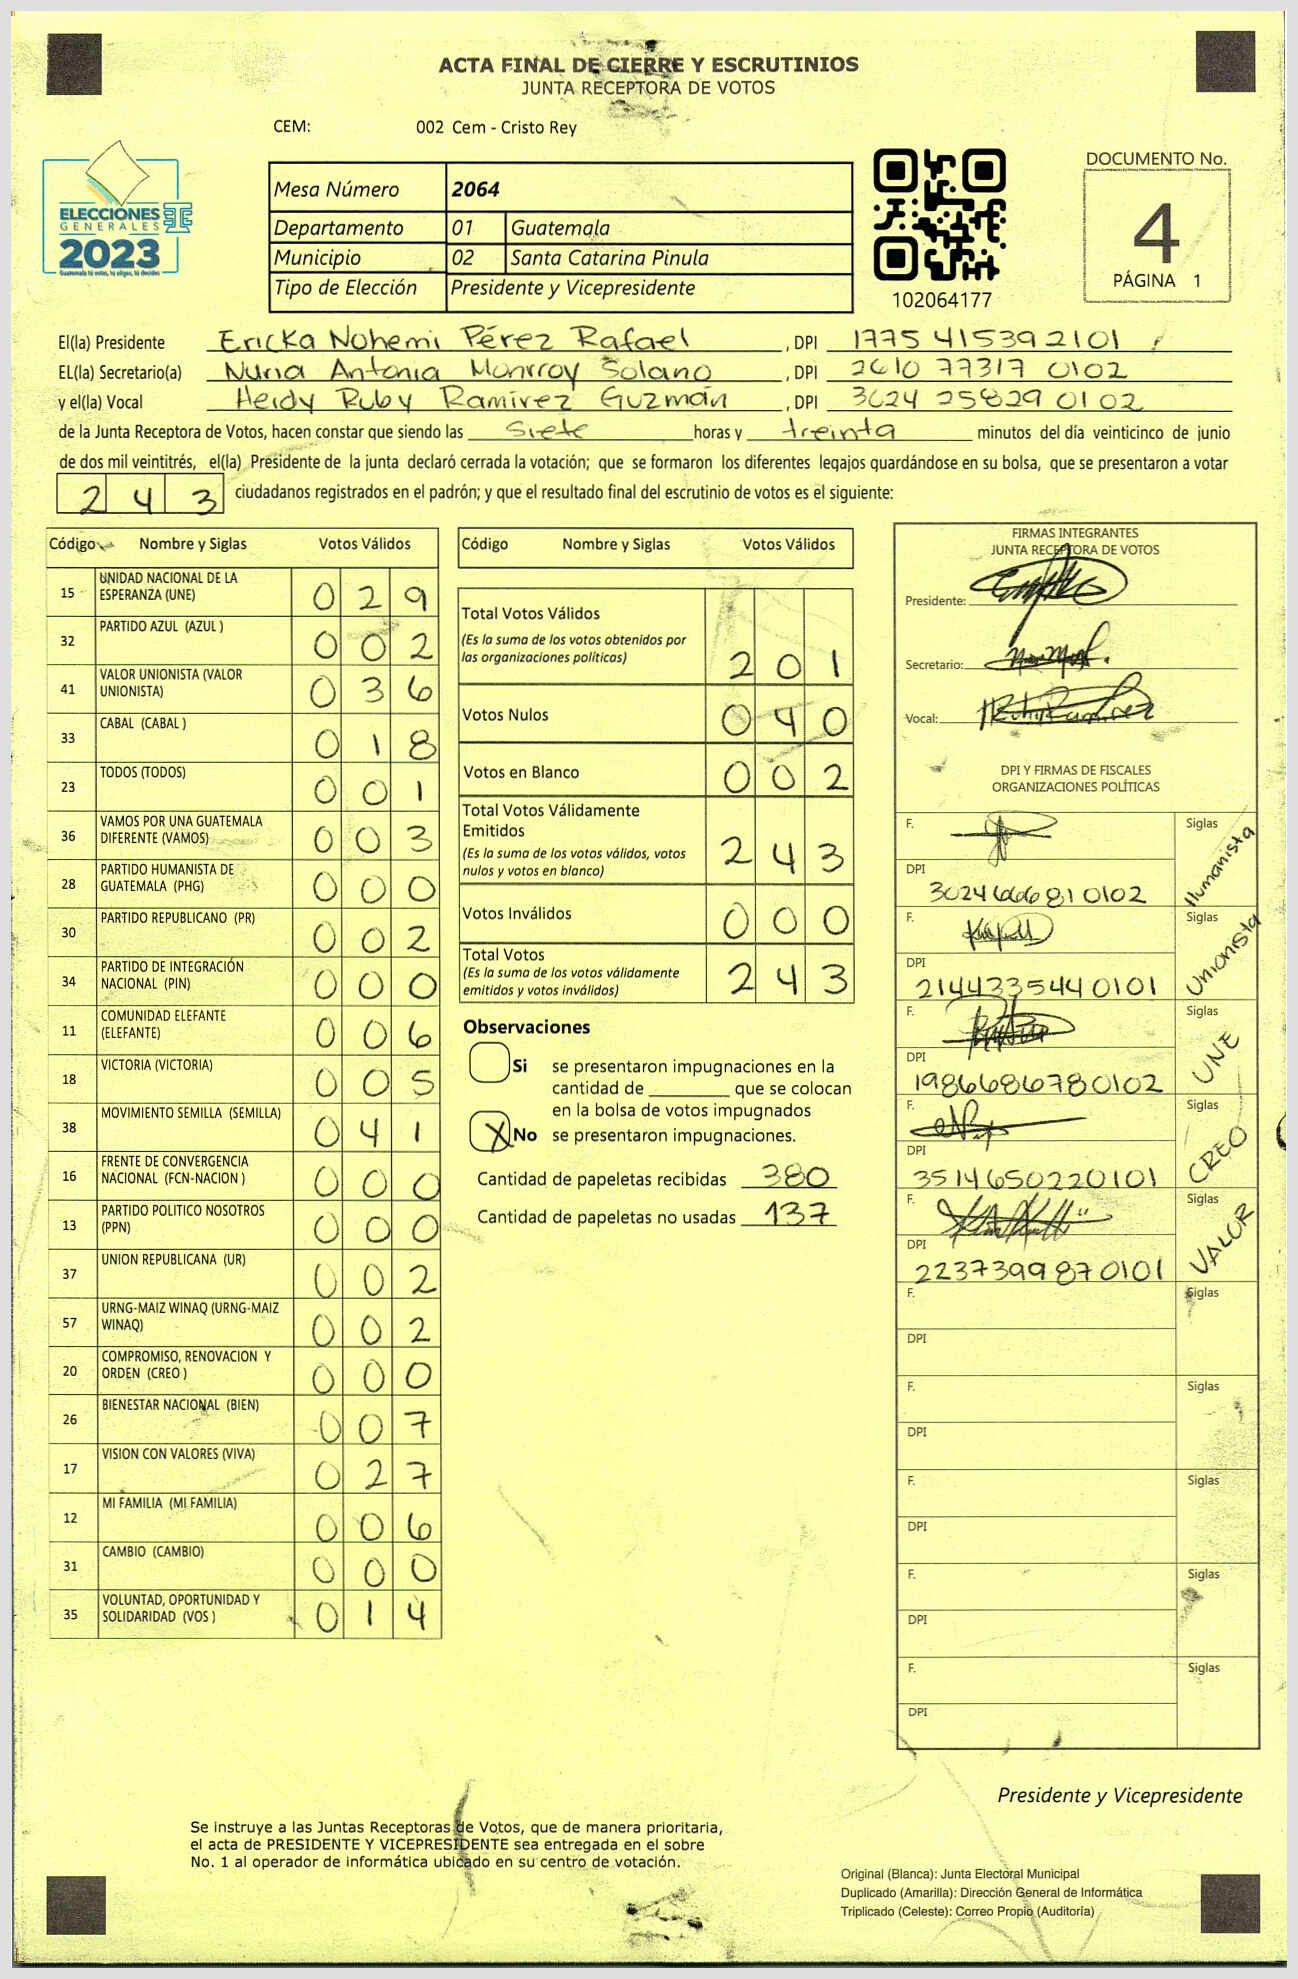 ACTA FINAL DE CIERRE Y ESCRUTINIOS
JUNTA RECEPTORA DE VOTOS
CEM: 002 Cem - Cristo Rey
ELECCIONES
GENERALES
2023
Guatemala tú votas, tú eliges, tú decides
Mesa Número 2064
Departamento 01 Guatemala
Municipio 02 Santa Catarina Pinula
Tipo de Elección Presidente y Vicepresidente
102064177
DOCUMENTO No.
4
PÁGINA 1
El(la) Presidente Ericka Nohemi Pérez Rafael , DPI 1775 41539 2101
EL(la) Secretario(a) Nuria Antonia Monrroy Solano , DPI 2610 77317 0102
y el(la) Vocal Heidy Ruby Ramirez Guzmán , DPI 3024 25829 0102
de la Junta Receptora de Votos, hacen constar que siendo las siete horas y treinta minutos del día veinticinco de junio
de dos mil veintitrés, el(la) Presidente de la junta declaró cerrada la votación; que se formaron los diferentes legajos guardándose en su bolsa, que se presentaron a votar
243 ciudadanos registrados en el padrón; y que el resultado final del escrutinio de votos es el siguiente:
Código Nombre y Siglas Votos Válidos
15 UNIDAD NACIONAL DE LA ESPERANZA (UNE) 029
32 PARTIDO AZUL (AZUL ) 002
41 VALOR UNIONISTA (VALOR UNIONISTA) 036
33 CABAL (CABAL ) 018
23 TODOS (TODOS) 001
36 VAMOS POR UNA GUATEMALA DIFERENTE (VAMOS) 003
28 PARTIDO HUMANISTA DE GUATEMALA (PHG) 000
30 PARTIDO REPUBLICANO (PR) 002
34 PARTIDO DE INTEGRACIÓN NACIONAL (PIN) 000
11 COMUNIDAD ELEFANTE (ELEFANTE) 006
18 VICTORIA (VICTORIA) 005
38 MOVIMIENTO SEMILLA (SEMILLA) 041
16 FRENTE DE CONVERGENCIA NACIONAL (FCN-NACION ) 000
13 PARTIDO POLITICO NOSOTROS (PPN) 000
37 UNION REPUBLICANA (UR) 002
57 URNG-MAIZ WINAQ (URNG-MAIZ WINAQ) 002
20 COMPROMISO, RENOVACION Y ORDEN (CREO ) 000
26 BIENESTAR NACIONAL (BIEN) 007
17 VISION CON VALORES (VIVA) 027
12 MI FAMILIA (MI FAMILIA) 006
31 CAMBIO (CAMBIO) 000
35 VOLUNTAD, OPORTUNIDAD Y SOLIDARIDAD (VOS ) 014
Código Nombre y Siglas Votos Válidos
Total Votos Válidos 201
(Es la suma de los votos obtenidos por
las organizaciones políticas)
Votos Nulos 040
Votos en Blanco 002
Total Votos Válidamente
Emitidos 243
(Es la suma de los votos válidos, votos
nulos y votos en blanco)
Votos Inválidos 000
Total Votos 243
(Es la suma de los votos válidamente
emitidos y votos inválidos)
Observaciones
Si se presentaron impugnaciones en la
cantidad de ________ que se colocan
en la bolsa de votos impugnados
X No se presentaron impugnaciones.
Cantidad de papeletas recibidas 380
Cantidad de papeletas no usadas 137
FIRMAS INTEGRANTES
JUNTA RECEPTORA DE VOTOS
Presidente:
Secretario:
Vocal:
DPI Y FIRMAS DE FISCALES
ORGANIZACIONES POLÍTICAS
F. Siglas Humanista
DPI 3024666810102
F. Siglas Unionista
DPI 2144335440101
F. Siglas UNE
DPI 1986686780102
F. Siglas CREO
DPI 3514650220101
F. Siglas VALOR
DPI 2237399870101
F. Siglas
DPI
F. Siglas
DPI
F. Siglas
DPI
F. Siglas
DPI
F. Siglas
DPI
Presidente y Vicepresidente
Se instruye a las Juntas Receptoras de Votos, que de manera prioritaria,
el acta de PRESIDENTE Y VICEPRESIDENTE sea entregada en el sobre
No. 1 al operador de informática ubicado en su centro de votación.
Original (Blanca): Junta Electoral Municipal
Duplicado (Amarilla): Dirección General de Informática
Triplicado (Celeste): Correo Propio (Auditoría)